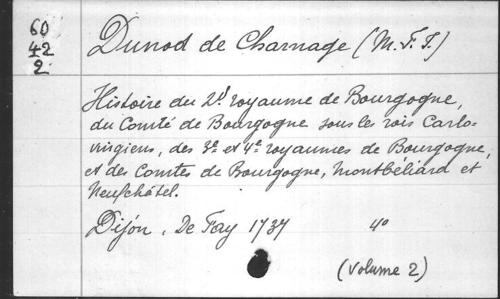 60
42
2
Dunod de Charnage (M. F. J.)
Histoire du 2d. royaume de Bourgogne,
du Comté de Bourgogne sous les rois Carlo-
vingiens, des 3e. et 4e. royaumes de Bourgogne,
et des Comtes de Bourgogne, Montbéliard et
Neufchâtel.
Dijon, De Fay 1737 4o
(Volume 2)